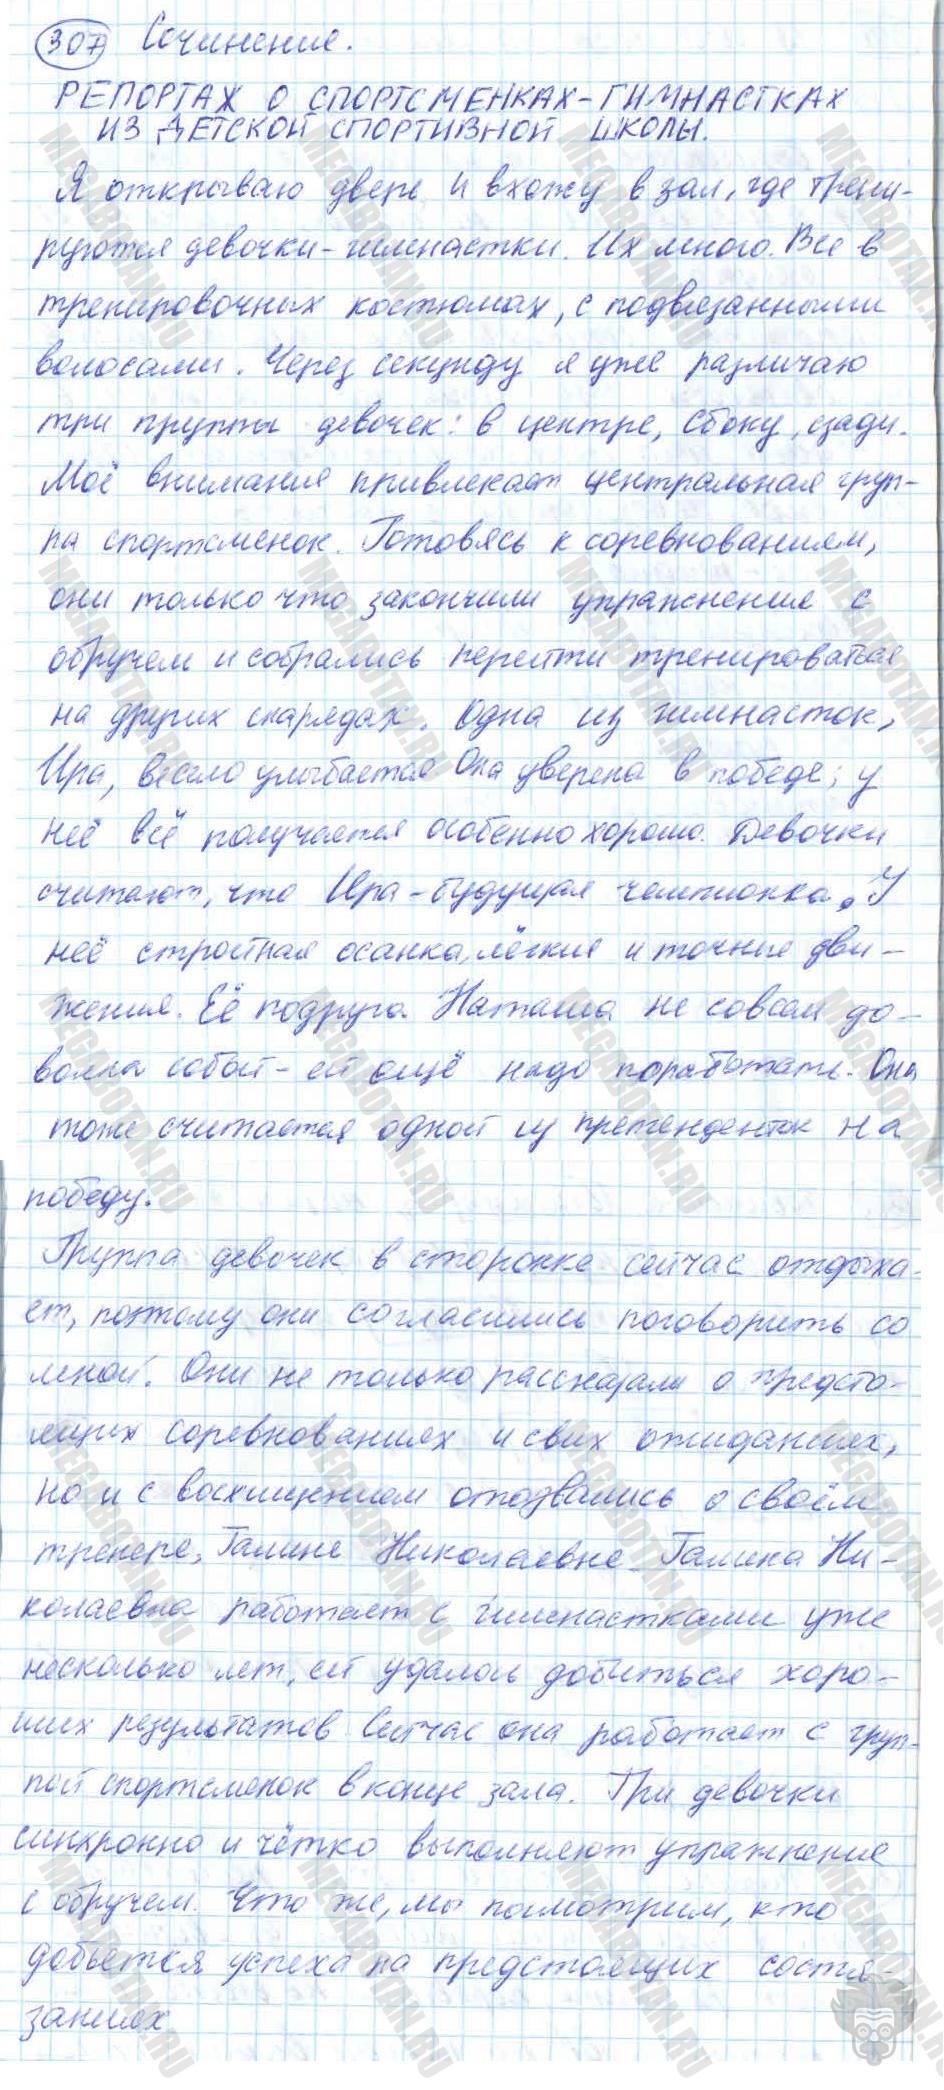 307 Сочинение.
РЕПОРТАЖ О СПОРТСМЕНКАХ-ГИМНАСТКАХ
ИЗ ДЕТСКОЙ СПОРТИВНОЙ ШКОЛЫ.
Я открываю двере и вхожу в зал, где трени-
руются девочки-гимнастки. Их много. Все в
тренировочных костюмах, с подвязанными
волосами. Через секунду я уже различаю
три группы девочек: в центре, сбоку, сзади.
Моё внимания привлекает центральная груп-
па спортсменок. Готовясь к соревнованиям,
они только что закончили упражнения с
обручем и собрались перейти тренироваться
на других снарядах. Одна из гимнасток,
Ира, весело улыбается Она уверена в победе; у
неё всё получается особенно хорошо. Девочки
считают, что Ира - будущая чемпионка. У
неё стройная осанка, лёгкие и точные дви-
жения. Её подруга Наташа не совсем до-
вольна собой - ей ещё надо поработать. Она
тоже считается одной из претенденток на
победу.
Группа девочек в сторонке сейчас отдыха-
ет, поэтому они согласились поговорить со
мной. Они не только рассказали о предсто-
ящих соревнованиях и свих ожиданиях,
но и с восхищением отозвались о своём
тренере, Галине Николаевне. Галина Ни-
колаевна работает с гимнастками уже
несколько лет, ей удалось добиться хоро-
ших результатов Сейчас она работает с груп-
пой спортсменок в конце зала. Три девочки
синхронно и чётко выполняют упражнение
с обручем. Что же, мы посмотрим, кто
добьется успеха на предстоящих состя-
заниях
MEGABOTAN.RU